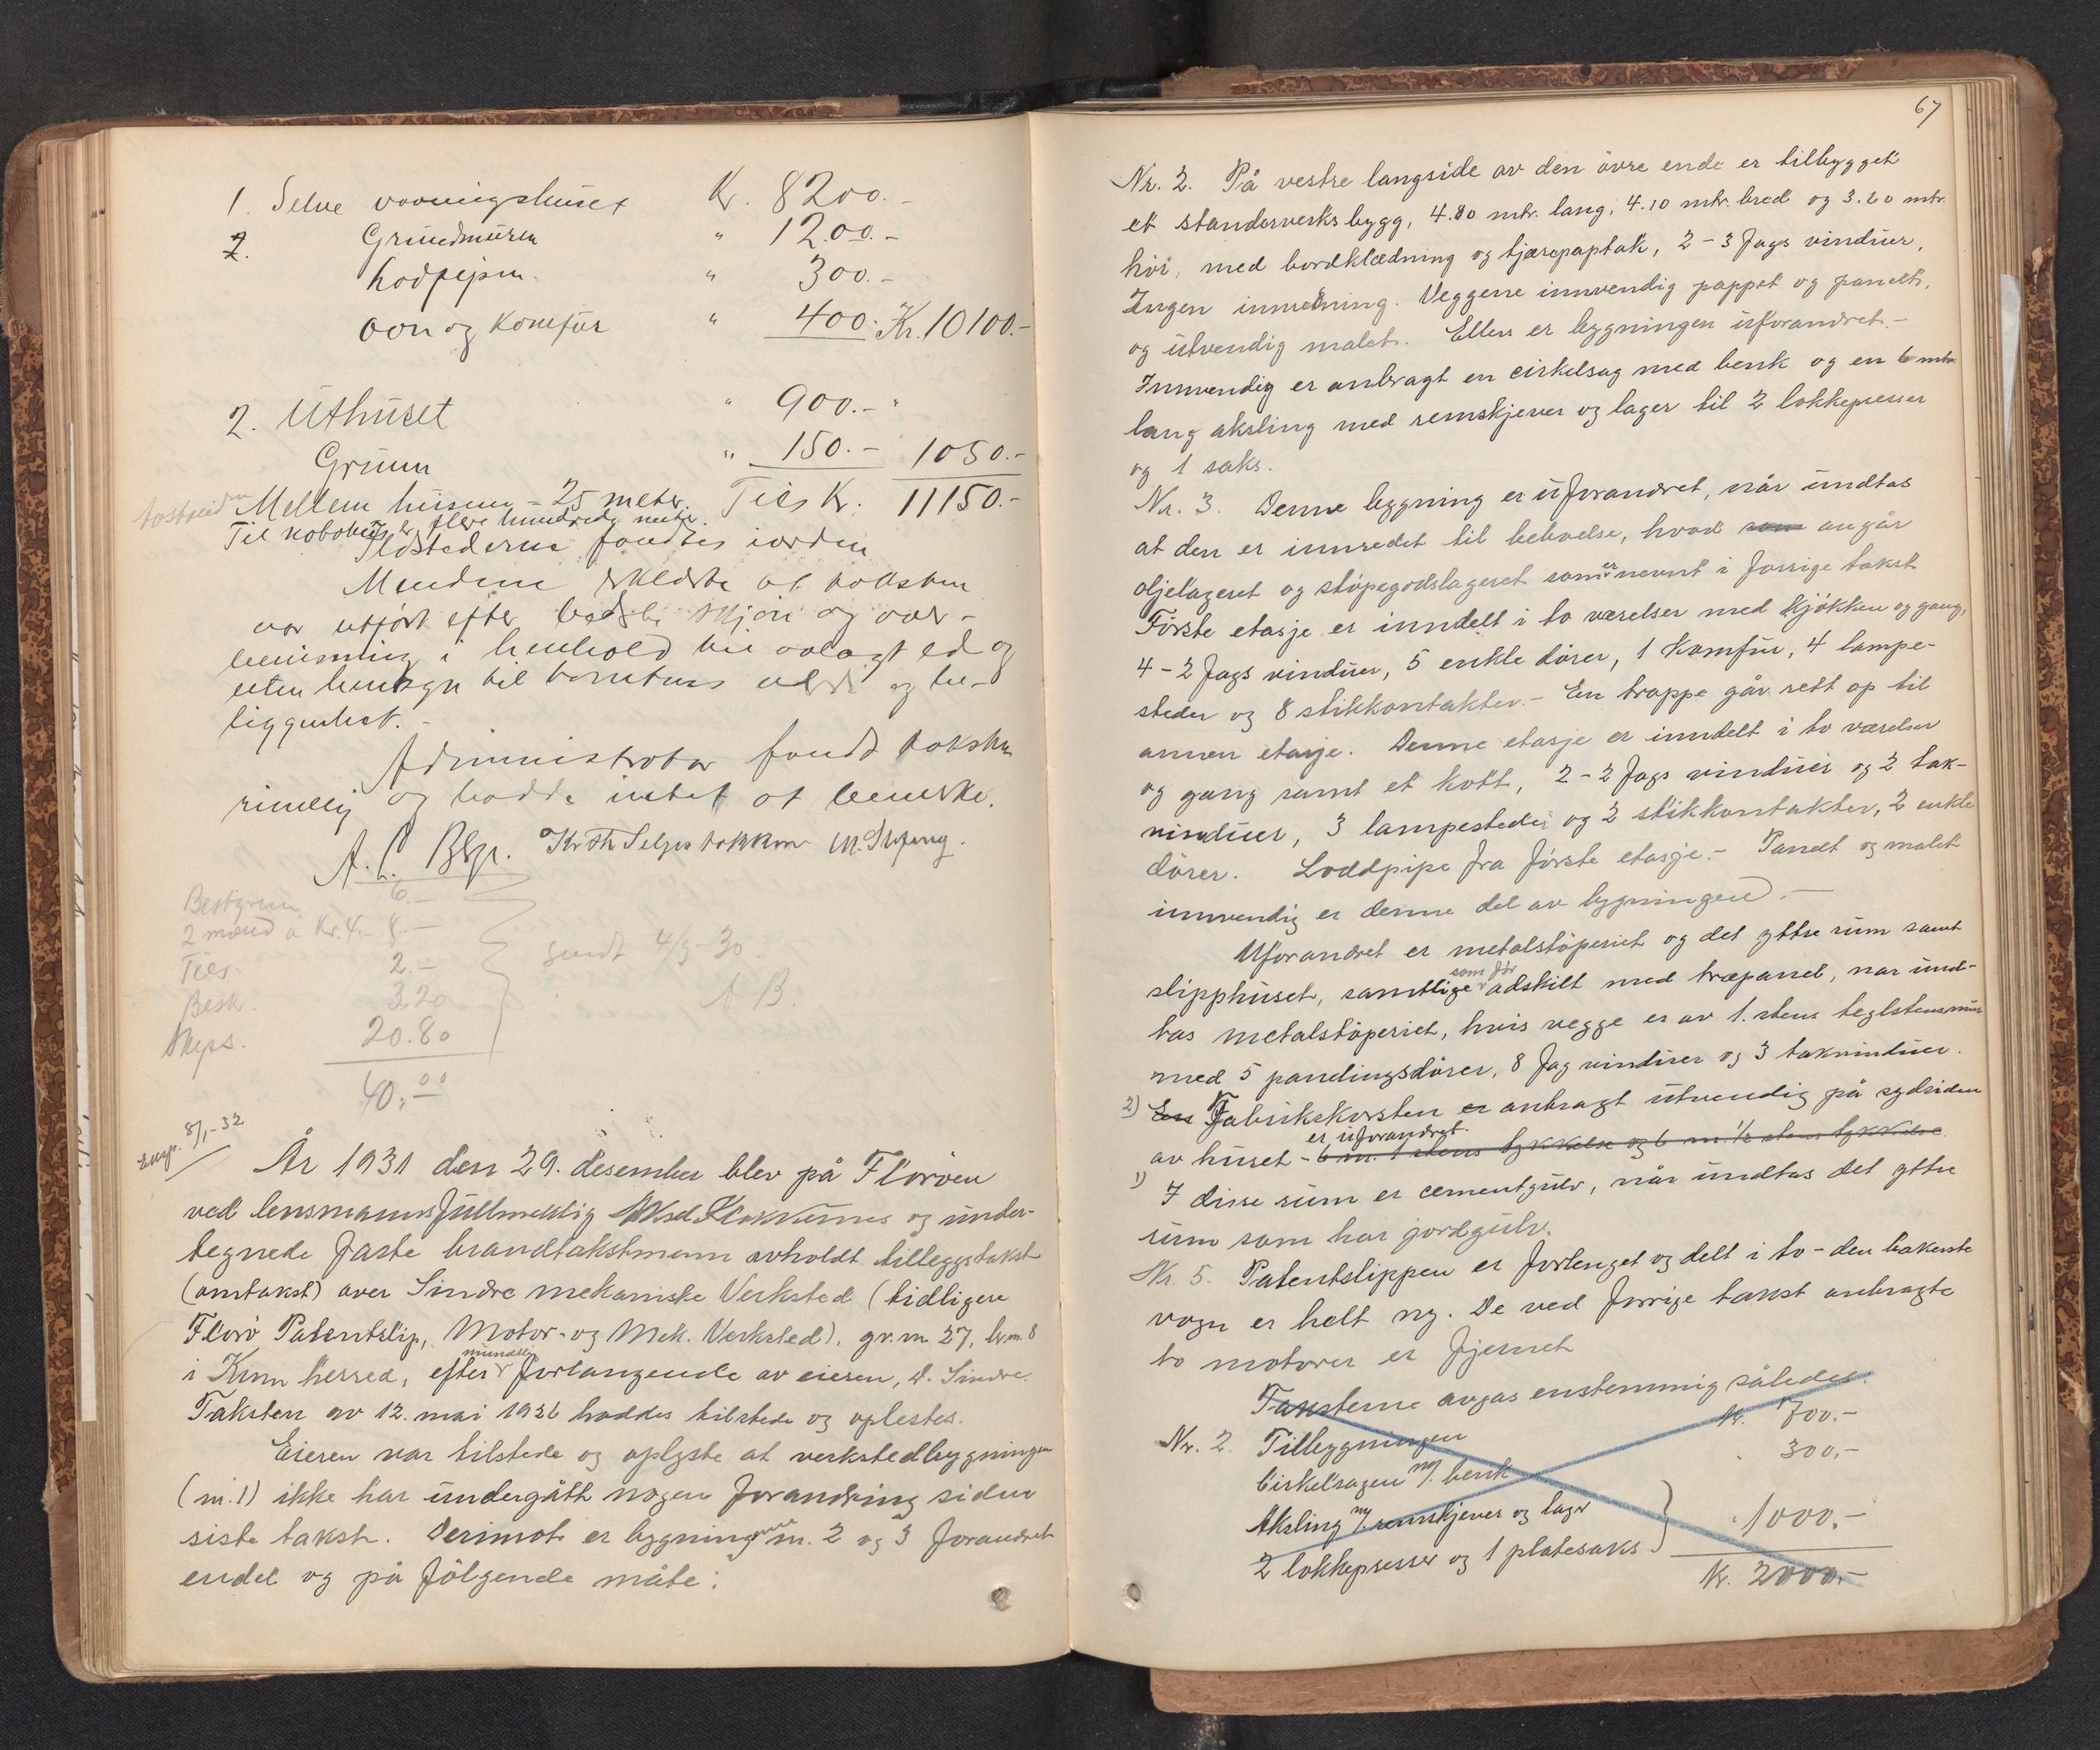 1. Selve vaaningshuset Kr. 8200.-
2. Grundmuren " 1200.-
Lodpipen. " 300.-
Ovn og Komfur " 400. Kr. 10100.-
2. Uthuset " 900.- "
Grunn " 150.- 1050.-
Mellem husene = 25 meter. Tils Kr. 11150.-
Til nabohus er flere hundrede meter.
Ildstederne fandtes iorden
Mendene erklærte at taksten
var utført efter bedste skjøn og over-
bevisning i henhold til avlagt ed og
uten hensyn til tomtens verdi og be-
liggenhet. -
Administrator fandt taksten
rimelig og hadde intet at bemerke.
A. L. Bkr. Kr Th Seljestokken M. Strøm
Bestyrer 6.-
2 mænd a Kr. 4.- 8.-
Tils. 2.-
Besk. 3.20
Skyss. 20.80
40.00
sendt 4/3-30
A B
Eksp. 8/1-32
År 1931 den 29. desember blev på Florøen
ved lensmannsfullmektig Aksel Klokkernes og under-
tegnede faste brandtakstmenn avholdt tilleggstakst
(omtakst) over Sindre mekaniske Verksted (tidligere
Florø Patentslip, Motor- og Mek. Verksted), gr.nr. 27, br.nr. 8
i Kinn herred, efter muntlig forlangende av eieren, A. Sindre.
Taksten av 12. mai 1926 haddes tilstede og oplestes.
Eieren var tilstede og oplyste at verkstedbygningen
(nr. 1) ikke har undergått nogen forandring siden
siste takst. Derimot er bygningene nr. 2 og 3 forandret
endel og på følgende måte:
67
Nr. 2. På vestre langside av den øvre ende er tilbygget
et standerverks bygg, 4.80 mtr. lang, 4.10 mtr. bred og 3.20 mtr.
høi, med bordklædning og tjærepaptak, 2 - 3 fags vinduer.
Ingen innredning. Veggene innvendig pappet og panelt,
og utvendig malet. Ellers er bygningen uforandret. -
Innvendig er anbragt en cirkelsag med benk og en 6 mtr.
lang aksling med remskjever og lager til 2 lokkepresser
og 1 saks.
Nr. 3. Denne bygning er uforandret, når undtas
at den er innredet til bekvelse, hvad som angår
oljelageret og støpegodslageret som er nevnt i forrige takst.
Første etasje er inndelt i to værelser med kjøkken og gang,
4 - 2 fags vinduer, 5 enkle dører, 1 Komfur, 4 lampe-
steder og 8 stikkontakter. - En trappe går rett op til
annen etasje. Denne etasje er inndelt i to værelser
og gang samt et kott, 2 - 2 fags vinduer og 2 tak-
vinduer, 3 lampesteder og 2 stikkontakter, 2 enkle
dører. Loddpipe fra første etasje. - Panelt og malet
innvendig er denne del av bygningen. -
Uforandret er metalstøperiet og det yttre rum samt
slipphuset, samtlige som før adskilt med træpanel, når und-
tas metalstøperiet, hvis vegge er av 1. stens teglstensmur
med 5 panelingsdører, 8 fag vinduer og 3 takvinduer.
2) En Fabrikskorsten er anbragt utvendig på sydsiden
av huset - er uforandret. 6 m. 1 stens tykkelse og 6 m. 1/2 stens tykkelse
1) I disse rum er cementgulv, når undtas det yttre
rum som har jordgulv.
Nr. 5. Patentslippen er forlenget og delt i to - den bakerste
vogn er helt ny. De ved forrige takst anbragte
to motorer er fjernet
Taksterne avgas enstemmig således:
Nr. 2. Tilbygningen Kr. 700.-
Cirkelsagen m/. benk " 300.-
Aksling m/ remskjever og lager
2 lokkepresser og 1 platesaks } " 1000.-
Kr. 2000.-